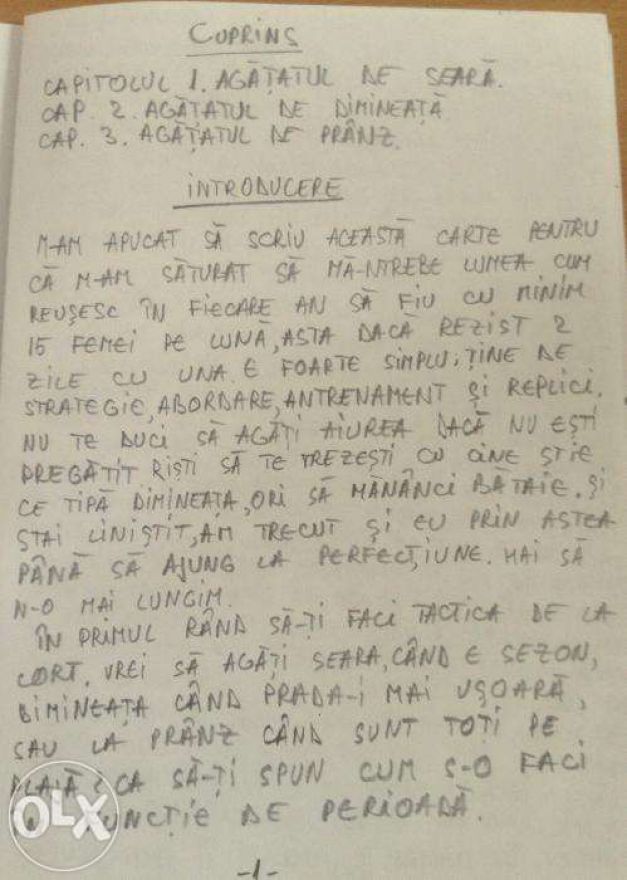 CUPRINS
CAPITOLUL 1. AGĂȚATUL DE SEARĂ.
CAP. 2. AGĂȚATUL DE DIMINEAȚĂ
CAP. 3. AGĂȚATUL DE PRÂNZ.
INTRODUCERE
M-AM APUCAT SĂ SCRIU ACEASTĂ CARTE PENTRU
CĂ M-AM SĂTURAT SĂ MĂ-NTREBE LUMEA CUM
REUȘESC ÎN FIECARE AN SĂ FIU CU MINIM
15 FEMEI PE LUNĂ, ASTA DACĂ REZIST 2
ZILE CU UNA. E FOARTE SIMPLU; ȚINE DE
STRATEGIE, ABORDARE, ANTRENAMENT ȘI REPLICI.
NU TE DUCI SĂ AGĂȚI AIUREA DACĂ NU EȘTI
PREGĂTIT RIȘTI SĂ TE TREZEȘTI CU CINE ȘTIE
CE TIPĂ DIMINEAȚA, ORI SĂ MĂNÂNCI BĂTAIE. ȘI
STAI LINIȘTIT, AM TRECUT ȘI EU PRIN ASTEA
PÂNĂ SĂ AJUNG LA PERFECȚIUNE. HAI SĂ
N-O MAI LUNGIM.
ÎN PRIMUL RÂND SĂ-ȚI FACI TACTICA DE LA
CORT. VREI SĂ AGĂȚI SEARA, CÂND E SEZON,
DIMINEAȚA CÂND PRADA-I MAI UȘOARĂ,
SAU LA PRÂNZ CÂND SUNT TOȚI PE
PLAJĂ? CA SĂ-ȚI SPUN CUM S-O FACI
FUNCȚIE DE PERIOADĂ.
OLX
-1-